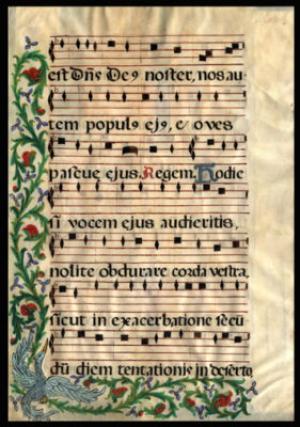 est Dñs De9 noster, nos au
tem popul9 ej9, & oves
pascuę ejus. Regem. Hodie
si vocem ejus audieritis,
nolite obdurare corda vestra,
sicut in exacerbatione secū
dū diem tentationis in deserto,